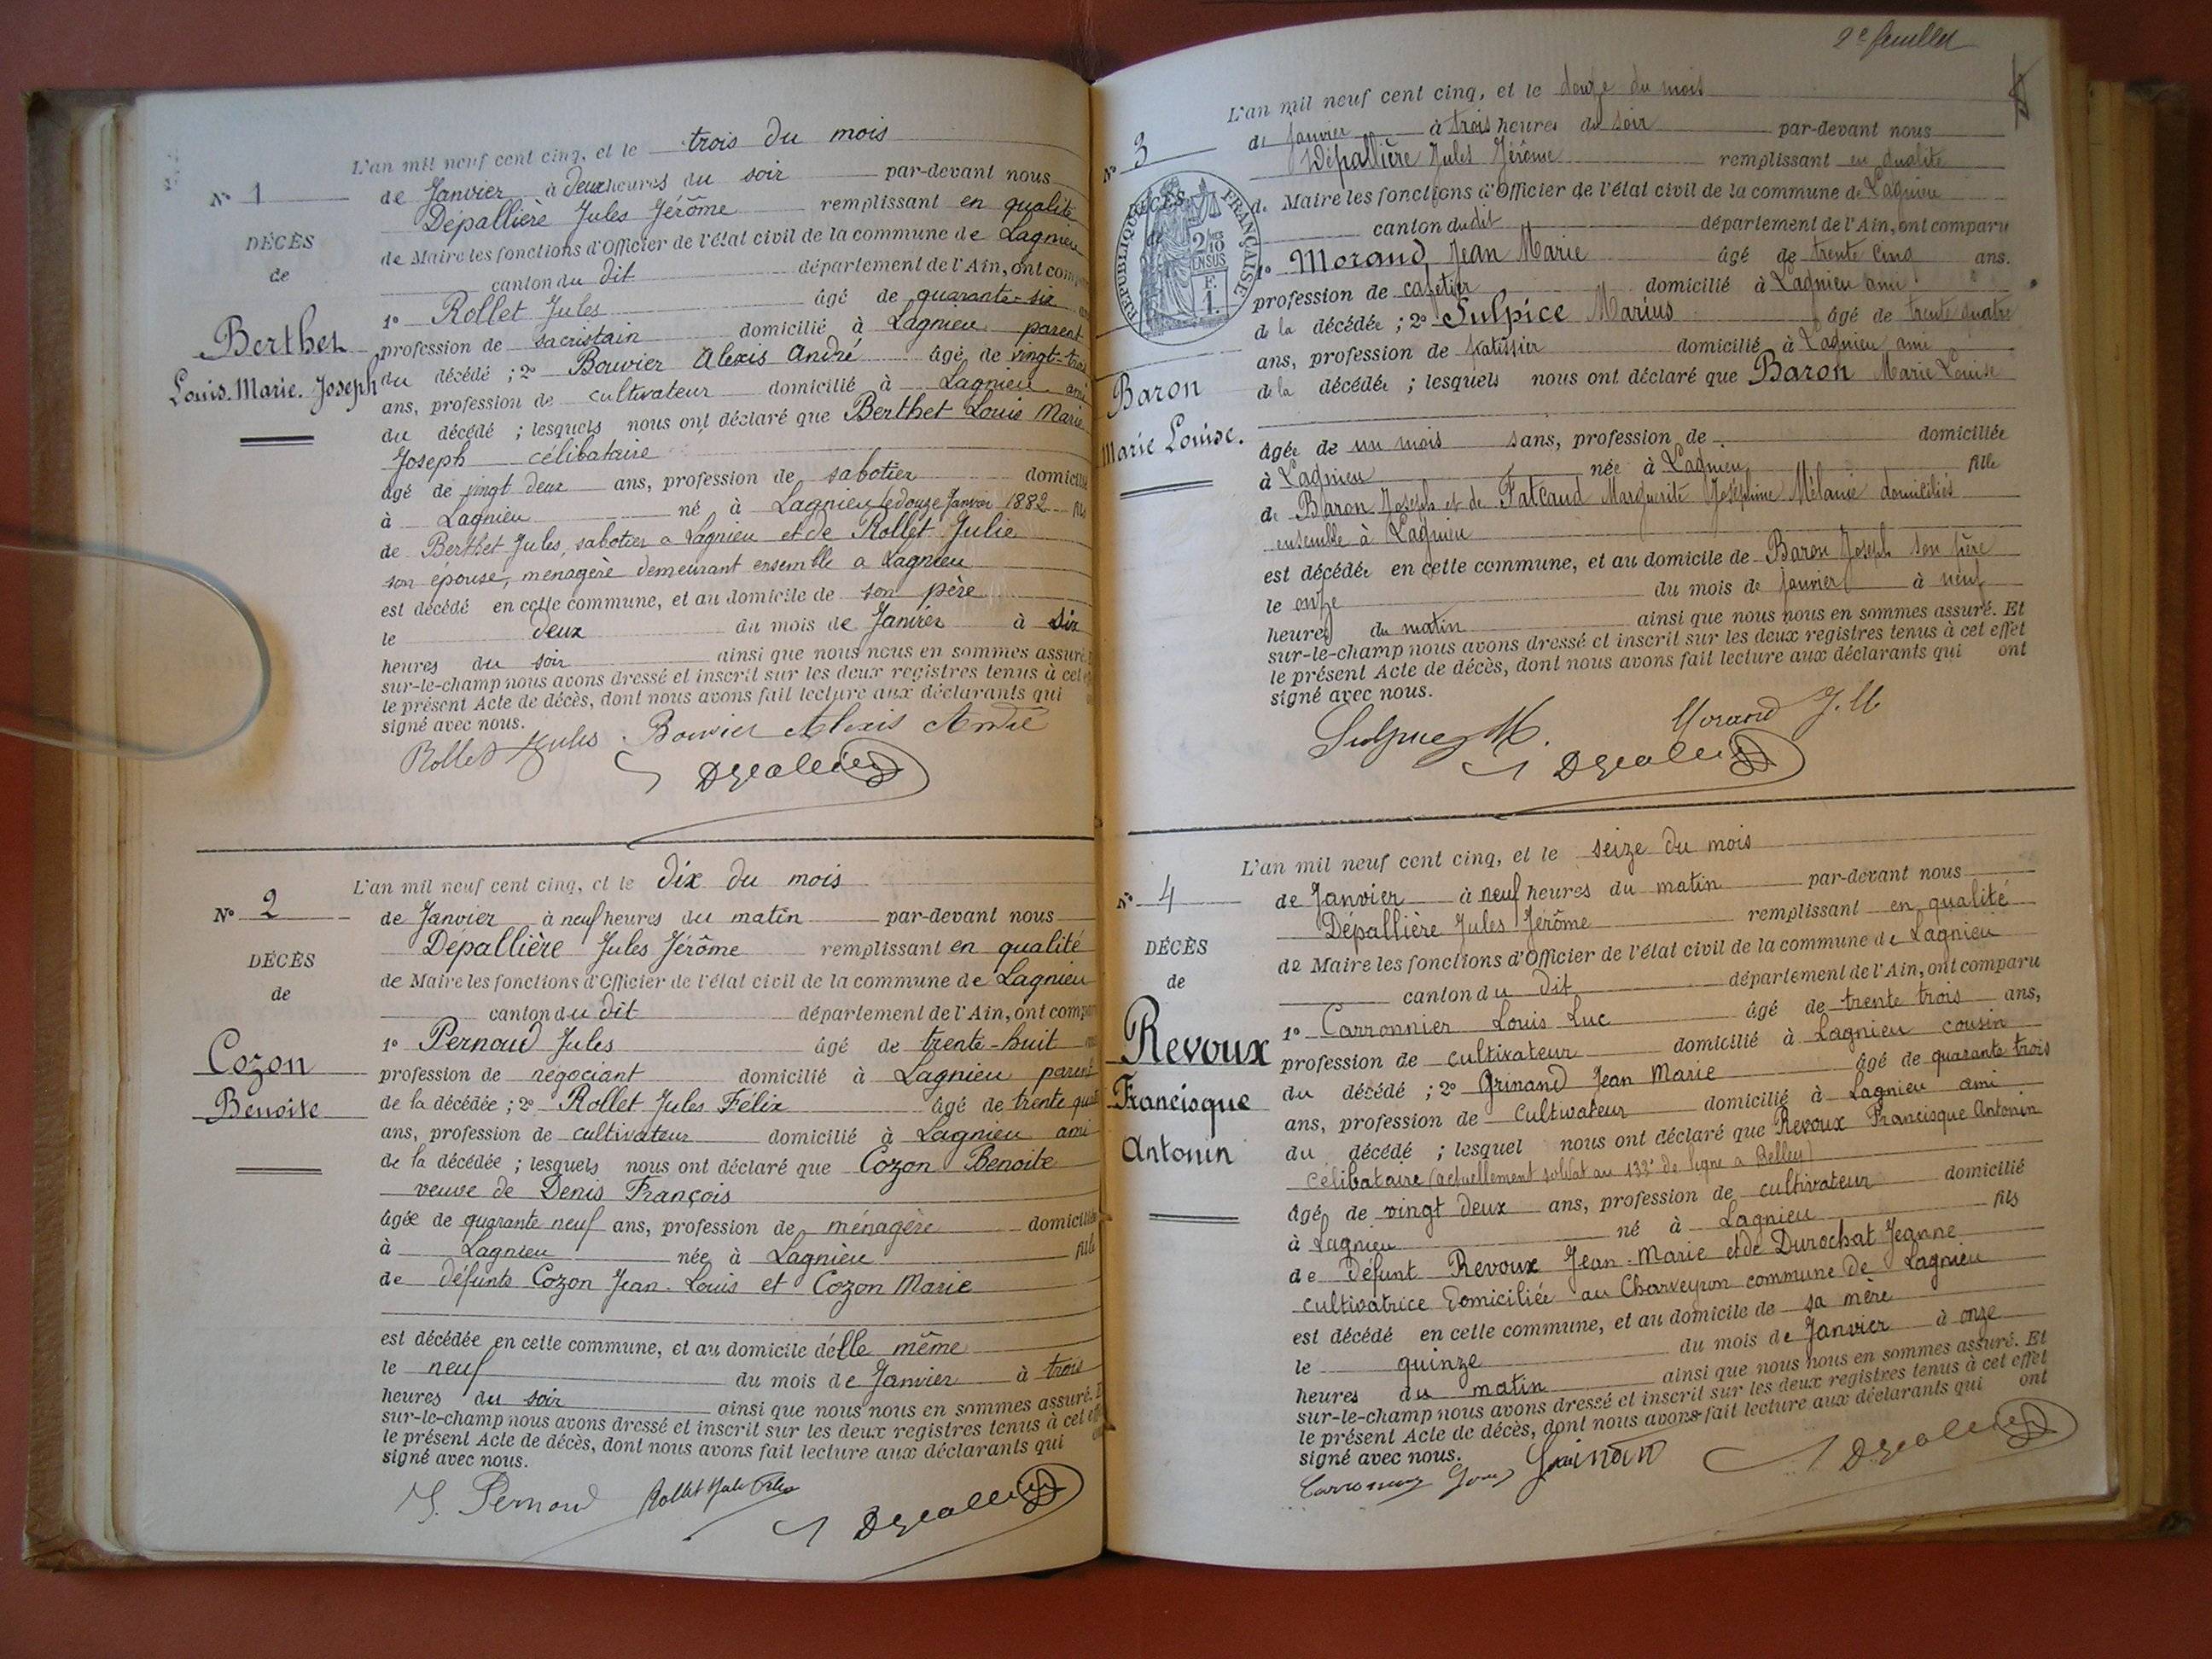 N° 1
DÉCÈS
de
Berthet
Louis. Marie. Joseph
L'an mil neuf cent cinq, et le trois du mois
de Janvier à deux heures du soir par-devant nous
Dépallière Jules Jérôme remplissant en qualité
de Maire les fonctions d'Officier de l'état civil de la commune de Lagnieu
canton du dit département de l'Ain, ont comparu
1° Rollet Jules âgé de quarante-six
profession de sacristain domicilié à Lagnieu parent
du décédé ; 2° Bouvier Alexis André âgé de vingt-trois
ans, profession de cultivateur domicilié à Lagnieu ami
du décédé ; lesquels nous ont déclaré que Berthet Louis Marie
Joseph célibataire
âgé de vingt deux ans, profession de sabotier domicilié
à Lagnieu né à Lagnieu le douze Janvier 1882 fils
de Berthet Jules, sabotier a Lagnieu et de Rollet Julie
son épouse, ménagère demeurant ensemble a Lagnieu
est décédé en cette commune, et au domicile de son père
le deux du mois de Janvier à six
heures du soir ainsi que nous nous en sommes assuré.
sur-le-champ nous avons dressé et inscrit sur les deux registres tenus à cet
le présent Acte de décès, dont nous avons fait lecture aux déclarants qui
signé avec nous.
Rollet Jules Bouvier Alexis André
N° 2
DÉCÈS
de
Cozon
Benoite
L'an mil neuf cent cinq, et le dix du mois
de Janvier à neuf heures du matin par-devant nous
Dépallière Jules Jérôme remplissant en qualité
de Maire les fonctions d'Officier de l'état civil de la commune de Lagnieu
canton du dit département de l'Ain, ont comparu
1° Pernoud Jules âgé de trente-huit
profession de négociant domicilié à Lagnieu parent
de la décédée ; 2° Rollet Jules Félix âgé de trente quatre
ans, profession de cultivateur domicilié à Lagnieu ami
de la décédée ; lesquels nous ont déclaré que Cozon Benoite
veuve de Denis François
âgée de quarante neuf ans, profession de ménagère domiciliée
à Lagnieu née à Lagnieu fille
de défunts Cozon Jean-Louis et Cozon Marie
est décédée en cette commune, et au domicile d'elle même
le neuf du mois de Janvier à trois
heures du soir ainsi que nous nous en sommes assuré.
sur-le-champ nous avons dressé et inscrit sur les deux registres tenus à cet
le présent Acte de décès, dont nous avons fait lecture aux déclarants qui
signé avec nous.
J. Pernoud Rollet Jules Félix
2e feuillet
N° 3
DÉCÈS
de
RÉPUBLIQUE FRANÇAISE
Baron
Marie Louise.
L'an mil neuf cent cinq, et le douze du mois
de Janvier à trois heures du soir par-devant nous
Dépallière Jules Jérôme remplissant en qualité
de Maire les fonctions d'Officier de l'état civil de la commune de Lagnieu
canton du dit département de l'Ain, ont comparu
1° Morand Jean Marie âgé de trente cinq ans.
profession de cafetier domicilié à Lagnieu ami
de la décédée ; 2° Sulpice Marius âgé de trente quatre
ans, profession de patissier domicilié à Lagnieu ami
de la décédée ; lesquels nous ont déclaré que Baron Marie Louise
âgée de un mois sans, profession de domiciliée
à Lagnieu née à Lagnieu fille
de Baron Joseph et de Fatcaud Marguerite Joséphine Mélanie domiciliés
ensemble à Lagnieu
est décédée en cette commune, et au domicile de Baron Joseph son père
le onze du mois de janvier à neuf
heures du matin ainsi que nous nous en sommes assuré. Et
sur-le-champ nous avons dressé et inscrit sur les deux registres tenus à cet effet
le présent Acte de décès, dont nous avons fait lecture aux déclarants qui ont
signé avec nous.
Sulpice M. Morand J. M
N° 4
DÉCÈS
de
Revoux
Francisque
Antonin
L'an mil neuf cent cinq, et le seize du mois
de Janvier à neuf heures du matin par-devant nous
Dépallière Jules Jérôme remplissant en qualité
de Maire les fonctions d'Officier de l'état civil de la commune de Lagnieu
canton du dit département de l'Ain, ont comparu
1° Carronnier Louis Luc âgé de trente trois ans,
profession de cultivateur domicilié à Lagnieu cousin
du décédé ; 2° Grinand Jean Marie âgé de quarante trois
ans, profession de cultivateur domicilié à Lagnieu ami
du décédé ; lesquel nous ont déclaré que Revoux Francisque Antonin
célibataire (actuellement soldat au 133e de ligne a Belley)
âgé de vingt deux ans, profession de cultivateur domicilié
à Lagnieu né à Lagnieu fils
de défunt Revoux Jean-Marie et de Durochat Jeanne
cultivatrice domiciliée au Charveyron commune de Lagnieu
est décédé en cette commune, et au domicile de sa mère
le quinze du mois de Janvier à onze
heures du matin ainsi que nous nous en sommes assuré. Et
sur-le-champ nous avons dressé et inscrit sur les deux registres tenus à cet effet
le présent Acte de décès, dont nous avons fait lecture aux déclarants qui ont
signé avec nous.